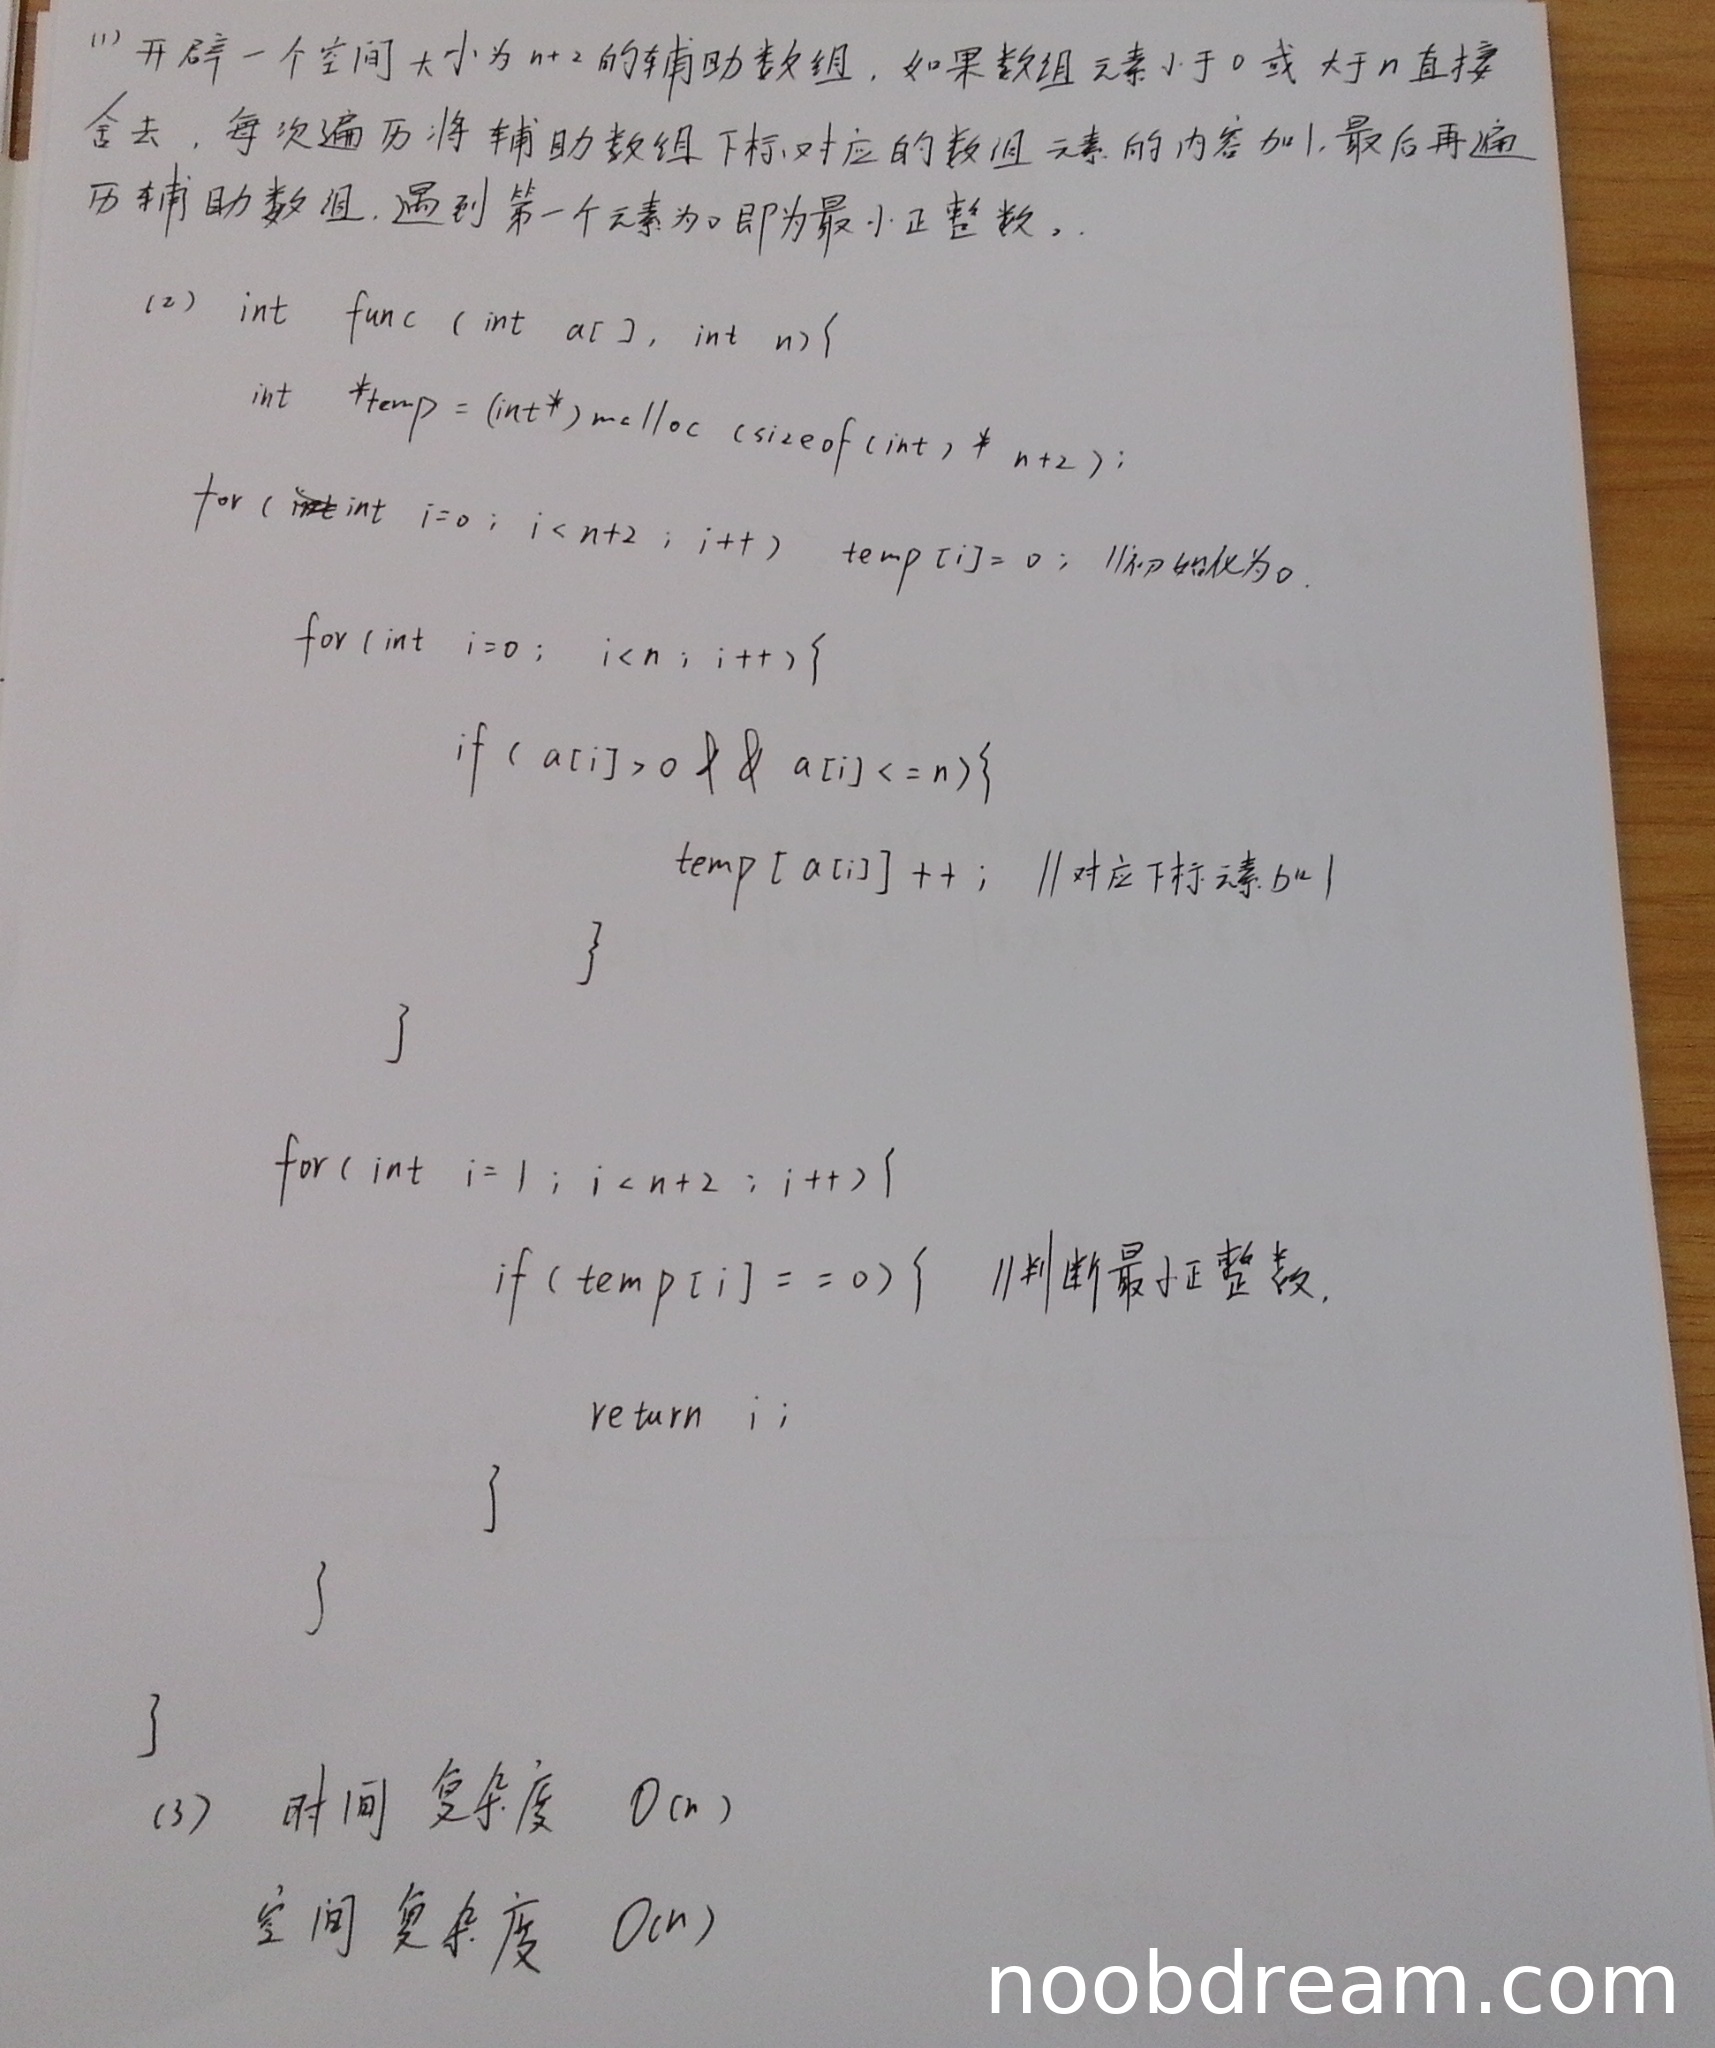 (1) 开辟一个空间大小为n+2的辅助数组，如果数组元素小于0或大于n直接
舍去，每次遍历将辅助数组下标对应的数组元素的内容加1，最后再遍
历辅助数组，遇到第一个元素为0即为最小正整数。
(2) int func (int a[], int n){
int *temp = (int*)malloc (sizeof(int) * n+2);
for (int i=0; i<n+2; i++) temp[i]=0; //初始化为0.
for(int i=0; i<n; i++){
if( a[i]>0 && a[i]<=n){
temp[a[i]]++; //对应下标元素加1
}
}
for(int i=1; i<n+2; i++){
if(temp[i]==0){ //判断最小正整数.
return i;
}
}
}
(3) 时间复杂度 O(n)
空间复杂度 O(n)
noobdream.com